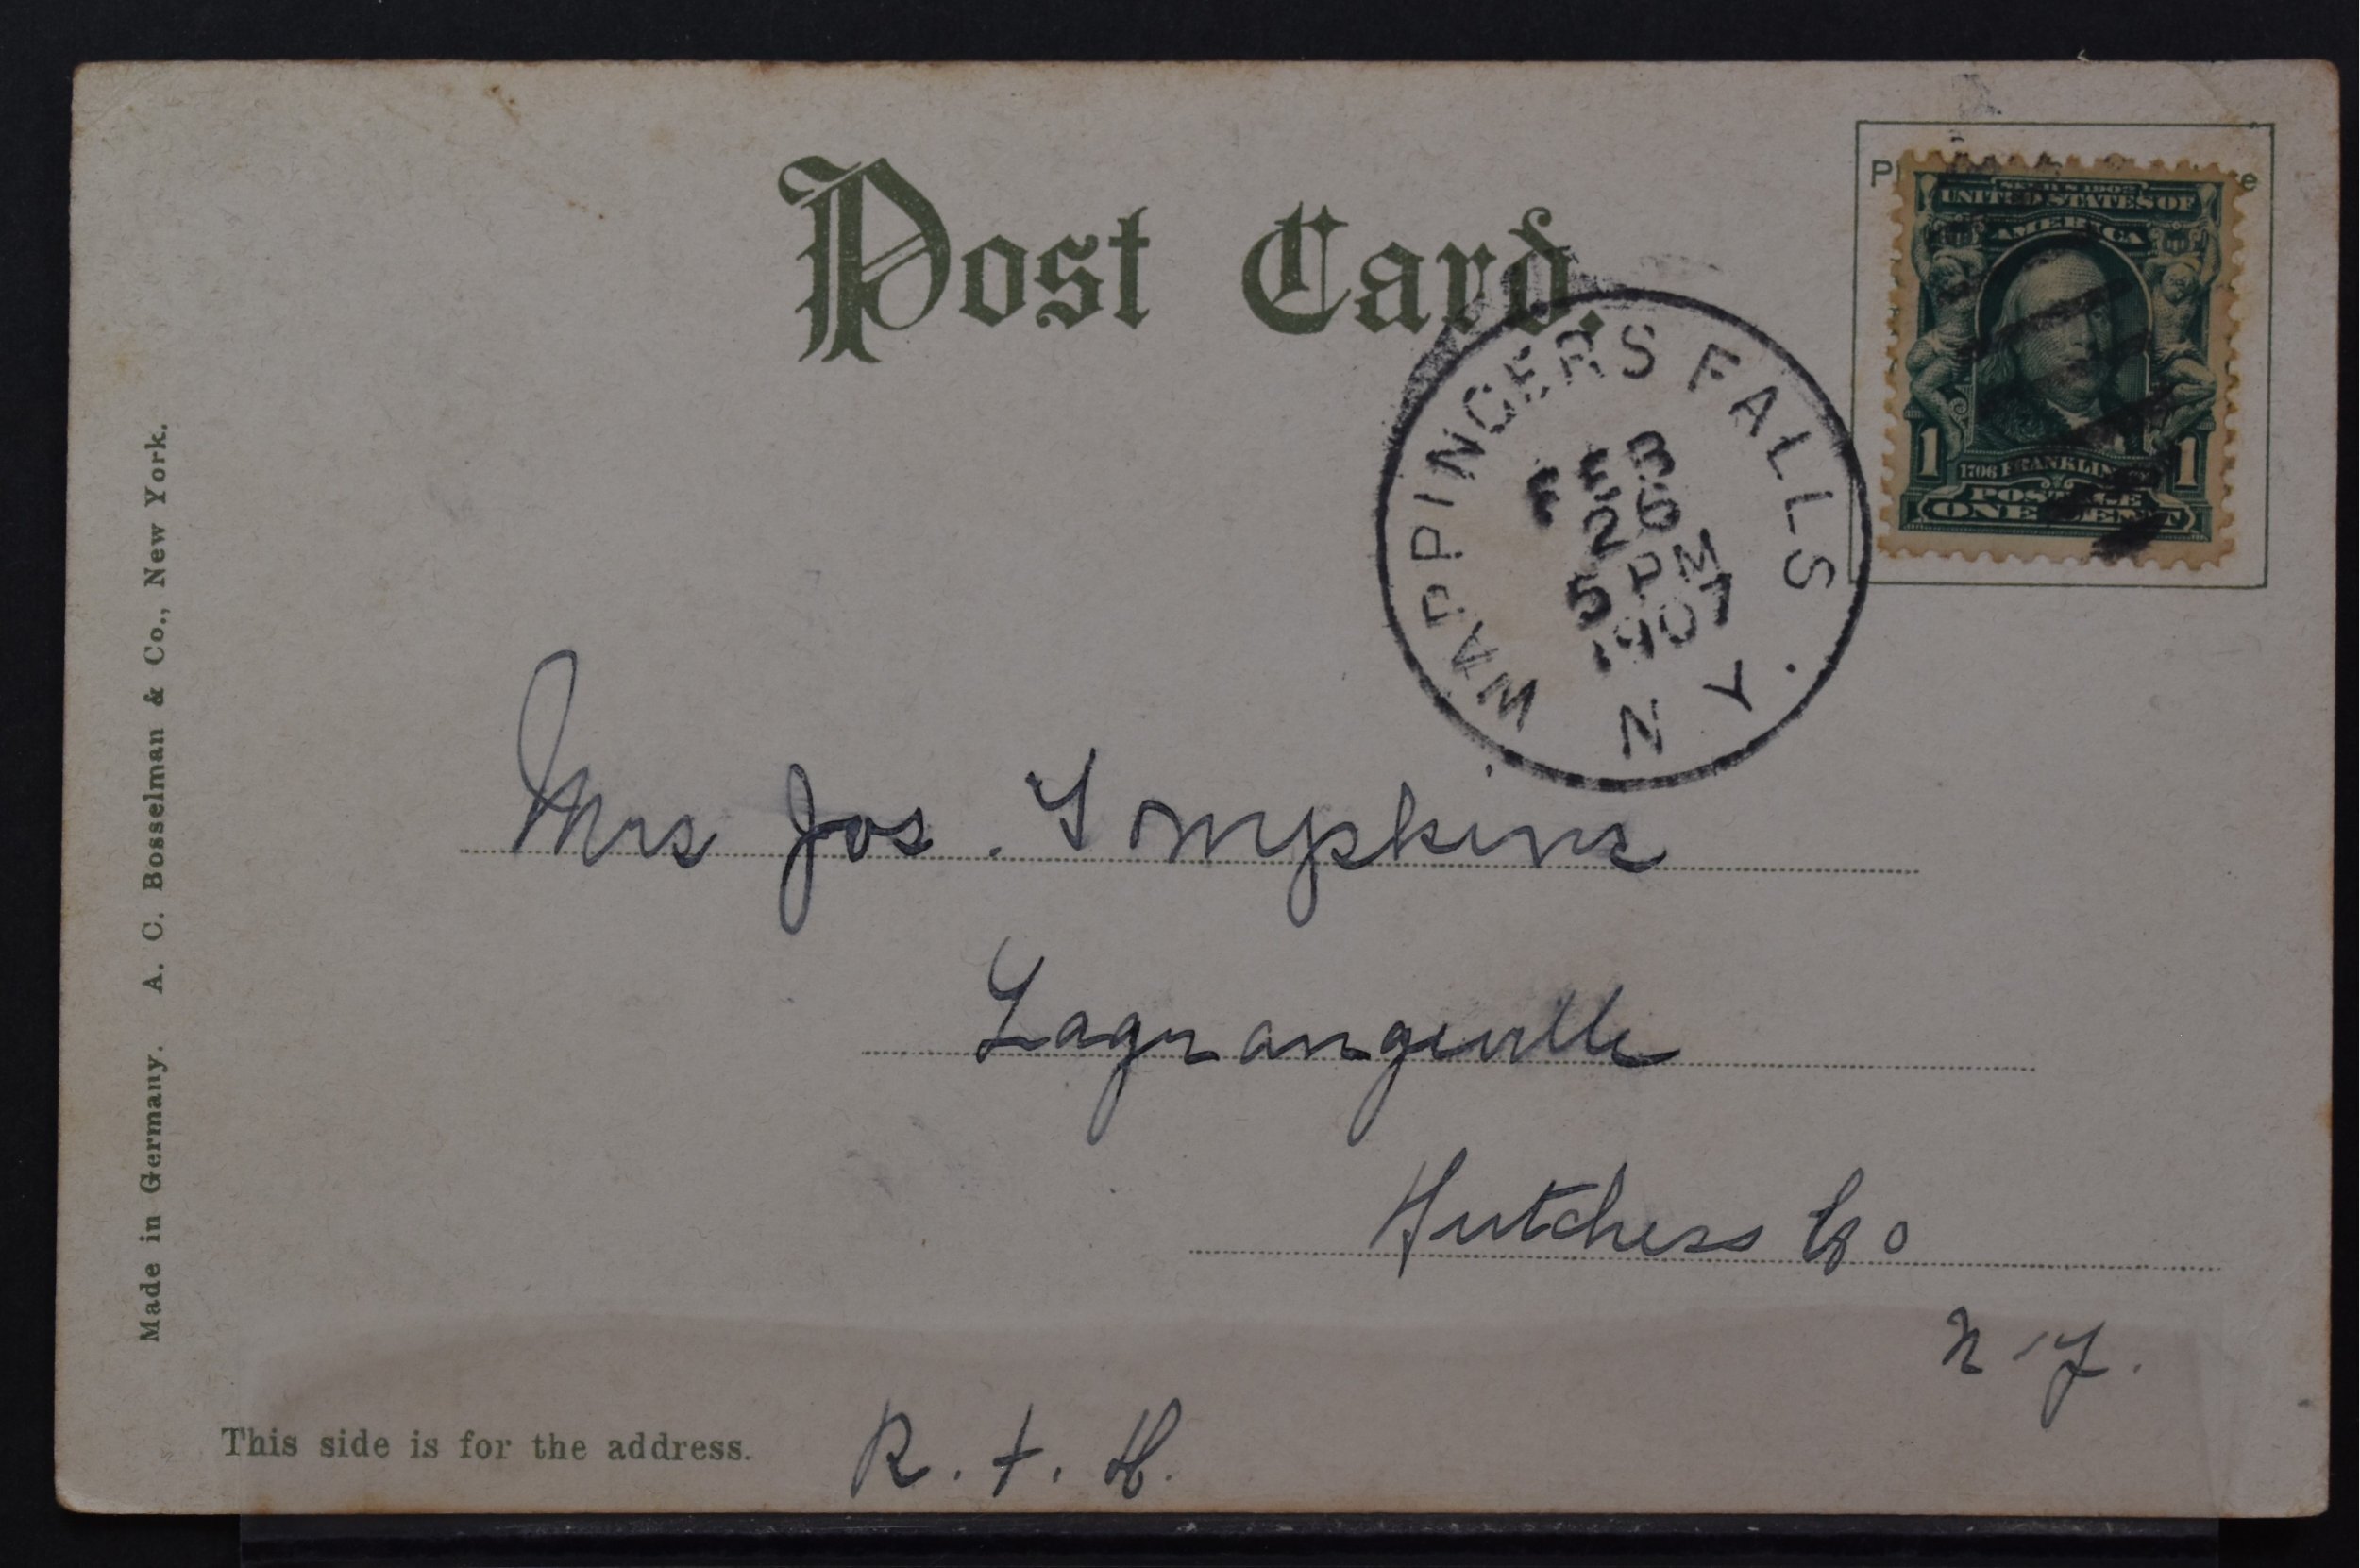 Post Card.
SERIES 1902
UNITED STATES OF
AMERICA
1 1
1706 FRANKLIN
POSTAGE
ONE CENT
WAPPINGERS FALLS
FEB
26
5 PM
1907
N Y
Mrs Jos. Tompkins
Lagrangeville
Dutchess Co
N-Y.
R. F. H.
This side is for the address.
Made in Germany. A. C. Bosselman & Co., New York.